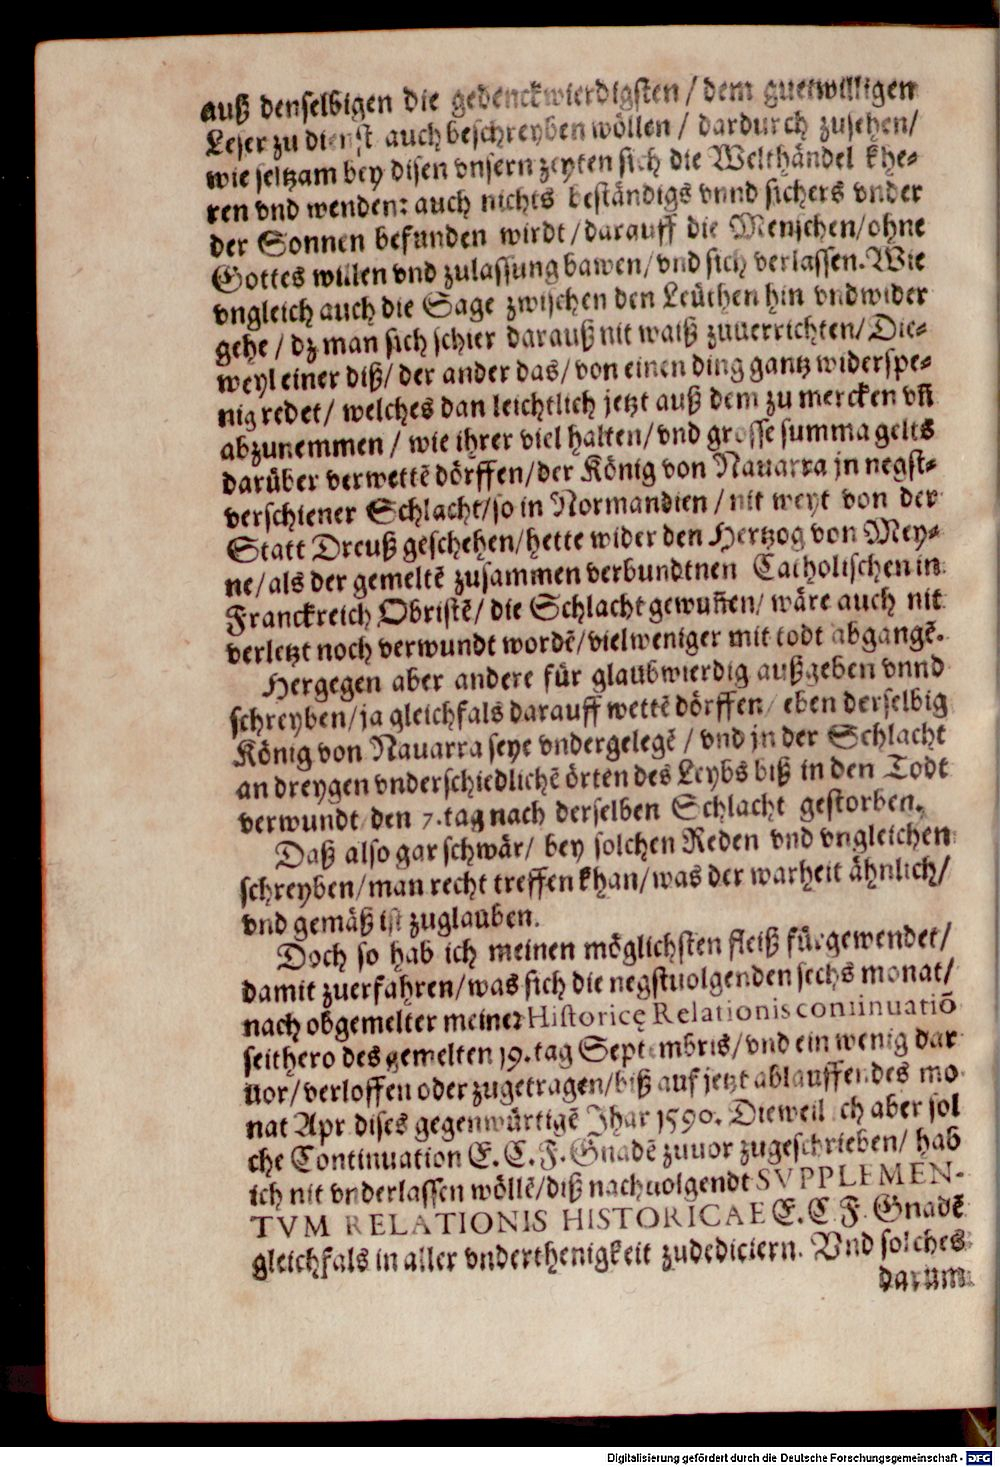 auß denselbigen die gedenckwierdigsten / dem guetwilligen
Leser zu dienst auch beschreyben wöllen / dardurch zusehen/
wie seltzam bey disen vnsern zeyten sich die Welthändel khe-
ren vnd wenden: auch nichts beständigs vnnd sichers vnder
der Sonnen befunden wirdt / darauff die Menschen / ohne
Gottes willen vnd zulassung bawen / vnd sich verlassen. Wie
vngleich auch die Sage zwischen den Leüthen hin vnd wider
gehe / dz man sich schier darauß nit waiß zuuerrichten / Die-
weyl einer diß / der ander das / von einen ding gantz widerspe-
nig redet / welches dan leichtlich jetzt auß dem zu mercken vñ
abzunemmen / wie ihrer viel halten / vnd grosse summa gelts
darüber verwettē dörffen / der König von Nauarra jn negst-
verschiener Schlacht / so in Normandien / nit weyt von der
Statt Dreuß geschehen / hette wider den Hertzog von Mey-
ne / als der gemeltē zusammen verbundtnen Catholischen in
Franckreich Obristē / die Schlacht gewuñen / wäre auch nit
verletzt noch verwundt wordē / vielweniger mit todt abgangē.
Hergegen aber andere für glaubwierdig außgeben vnnd
schreyben / ja gleichfals darauff wettē dörffen / eben derselbig
König von Nauarra seye vndergelegē / vnd jn der Schlacht
an dreygen vnderschiedlichē örten des Leybs biß in den Todt
verwundt den 7. tag nach derselben Schlacht gestorben.
Daß also gar schwär / bey solchen Reden vnd vngleichen
schreyben / man recht treffen khan / was der warheit ähnlich /
vnd gemäß ist zuglauben.
Doch so hab ich meinen möglichsten fleiß fürgewendet /
damit zuerfahren / was sich die negstuolgenden sechs monat /
nach obgemelter meiner Historicę Relationis continuatiō
seithero des gemelten 19. tag Septembris / vnd ein wenig dar
uor / verloffen oder zugetragen / biß auf jetzt ablauffendes mo
nat Apr dises gegenwürtigē Jhar 1590. Dieweil ich aber sol
che Continuation E. C. F. Gnadē zuuor zugeschrieben / hab
ich nit vnderlassen wöllē / diß nachuolgendt SVPPLEMEN-
TVM RELATIONIS HISTORICAE E. C F. Gnadē
gleichfals in aller vnderthenigkeit zudediciern. Vnd solches
darum
Digitalisierung gefördert durch die Deutsche Forschungsgemeinschaft - DFG